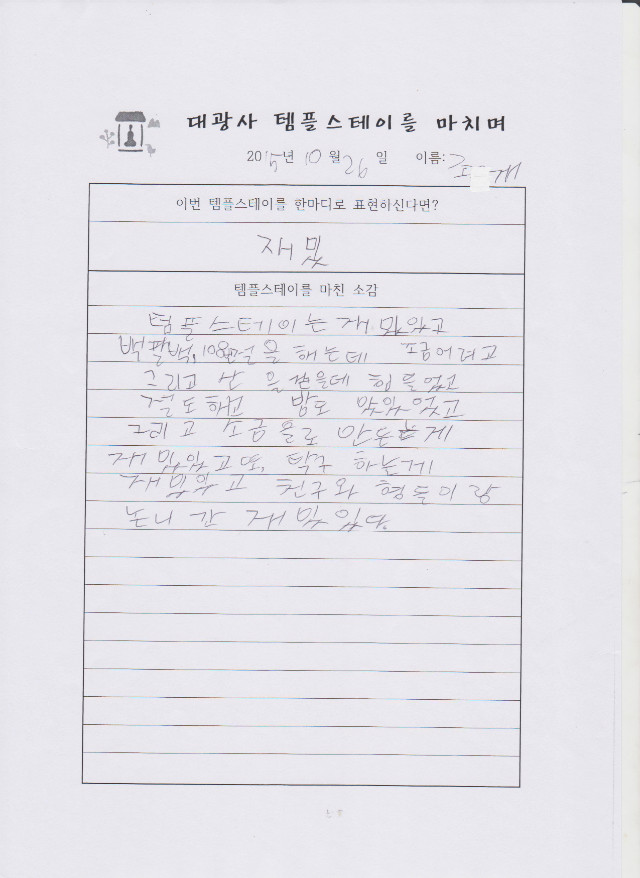 대광사 템플스테이를 마치며
2015년 10월 26일 이름:
이번 템플스테이를 한마디로 표현하신다면?
재밌
템플스테이를 마친 소감
템플스테이는 재밌었고
백팔백, 108절을 해는데 조금어려고
그리고 산을 걷을데 힘들었고
절도하고 밥도 맛있었고
그리고 소금 만든게
재밌있고 또, 탁구 하는게
재밌있고 친구와 형들이랑
노니 간 재밌있다.